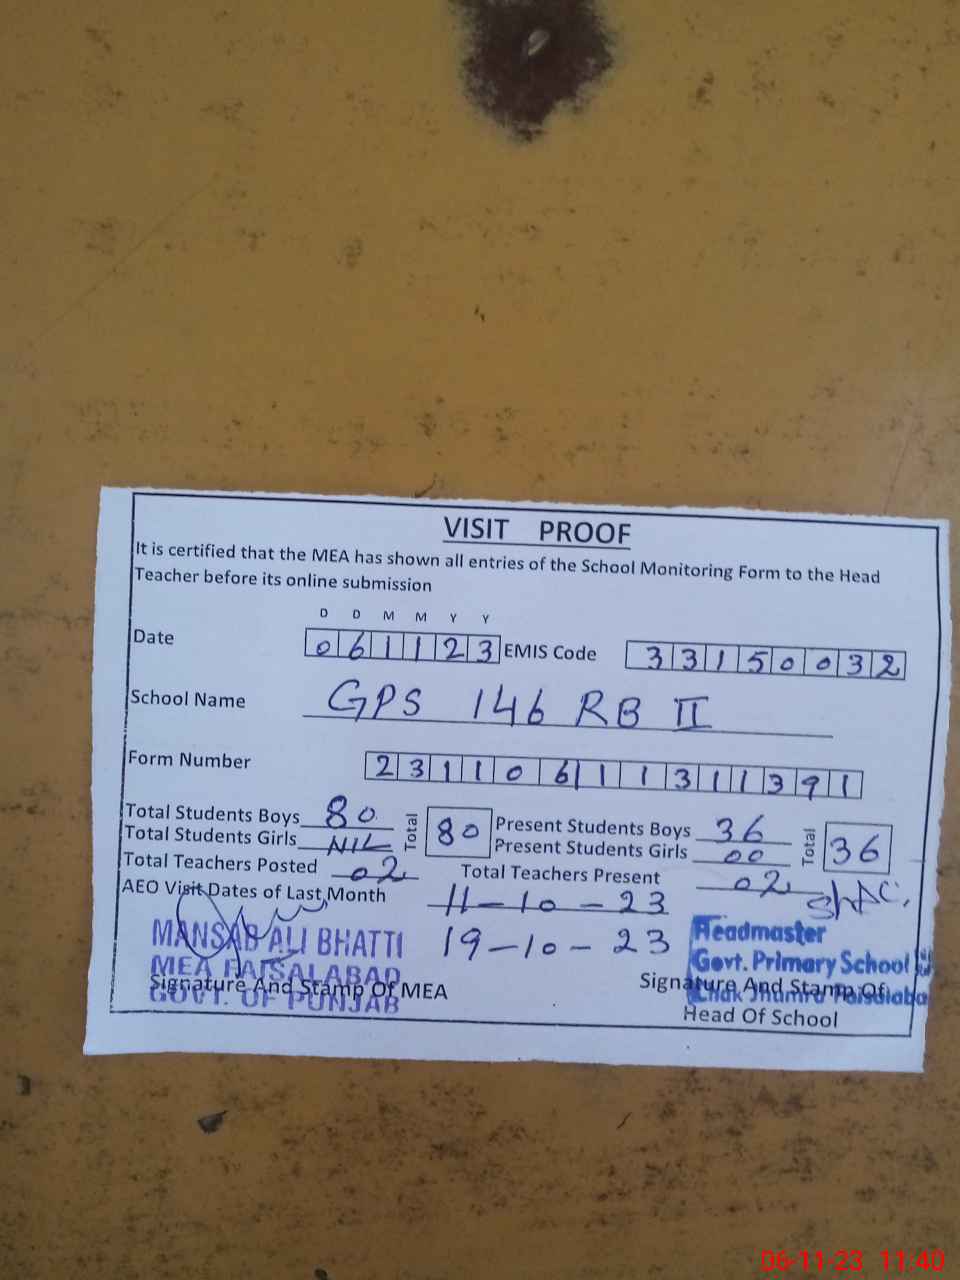 VISIT PROOF
It is certified that the MEA has shown all entries of the School Monitoring Form to the Head
Teacher before its online submission
D D M M Y Y
Date 061123 EMIS Code 33150032
School Name GPS 146 RB II
Form Number 231106113111391
Total Students Boys 80 Total 80 Present Students Boys 36 Total 36
Total Students Girls NIL Present Students Girls 00
Total Teachers Posted 02 Total Teachers Present 02
AEO Visit Dates of Last Month 11-10-23
19-10-23
MANSAB ALI BHATTI
MEA FAISALABAD
GOVT. OF PUNJAB
Signature And Stamp Of MEA
Headmaster
Govt. Primary School
Chak Jhumra Faisalabad
Signature And Stamp Of
Head Of School
06-11-23 11:40